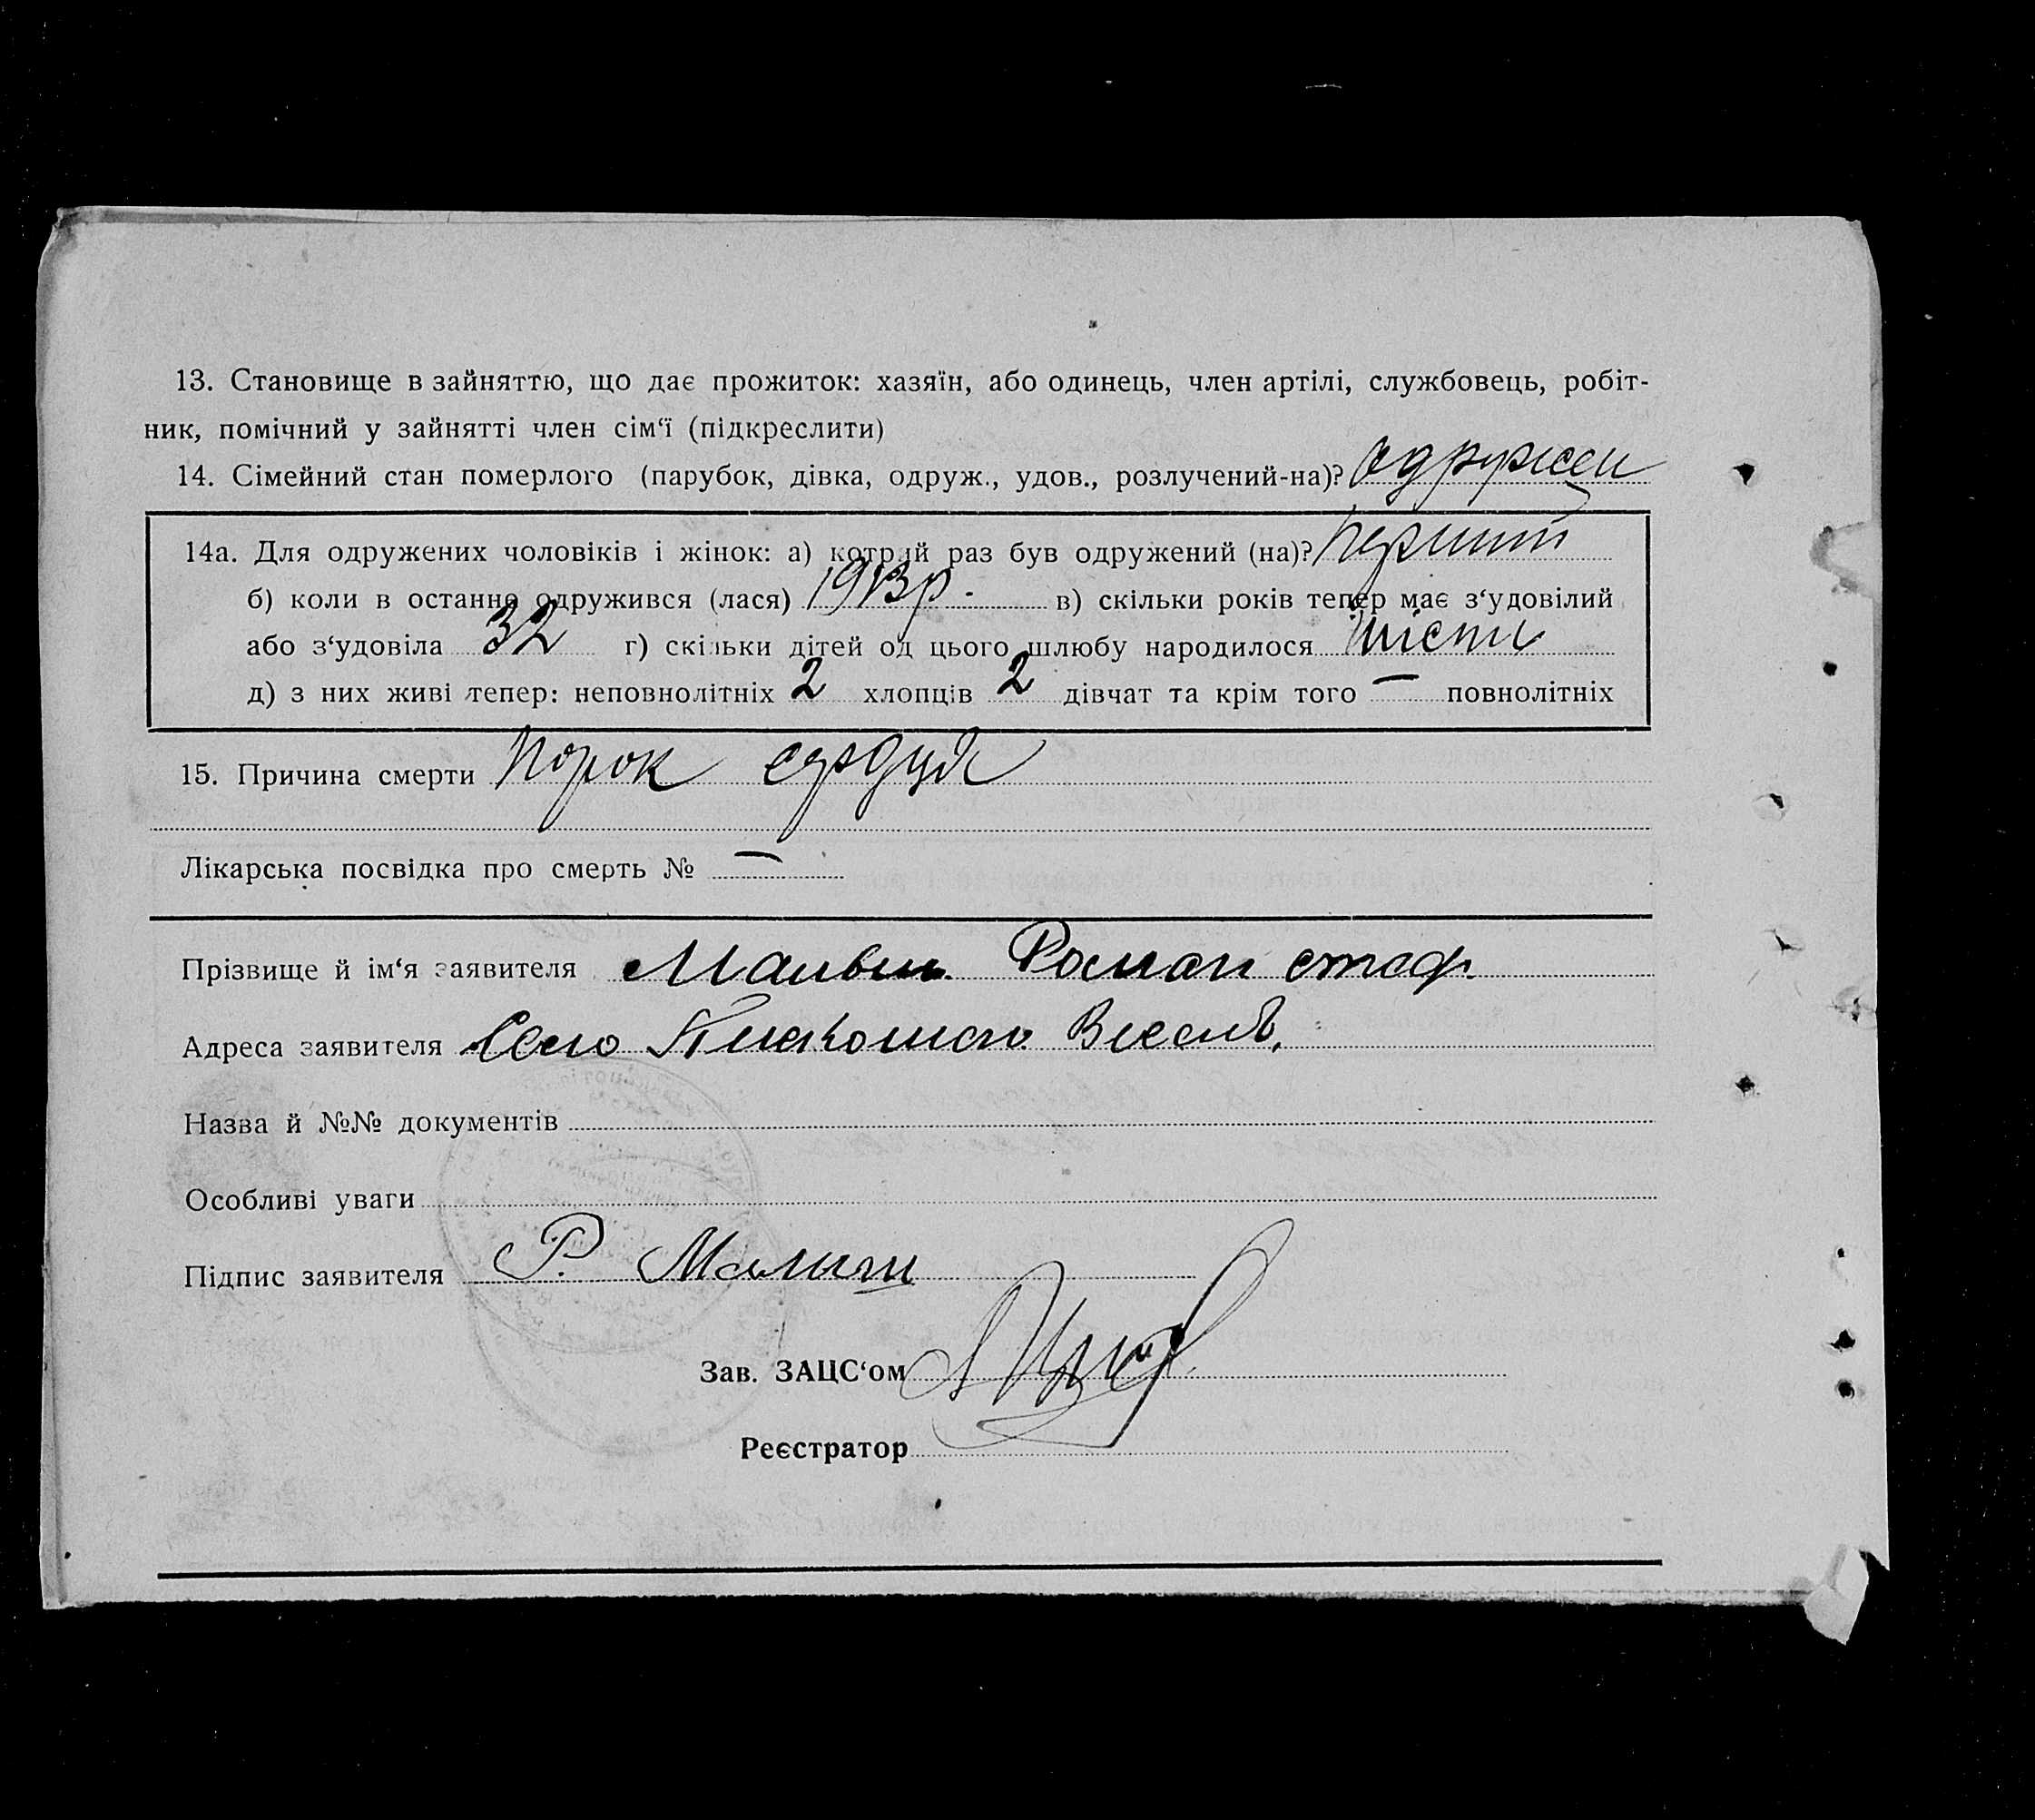 13. Становище в зайняттю, що дає прожиток: хазяїн, або одинець, член артілі, службовець, робіт-
ник, помічний у зайнятті член сім‘ї (підкреслити)
14. Сімейний стан померлого (парубок, дівка, одруж., удов., розлучений-на)? одружен
14а. Для одружених чоловіків і жінок: а) котрий раз був одружений (на)? перший
б) коли в останнє одружився (лася) 1913р. в) скільки років тепер має з‘удовілий
або з‘удовіла 32 г) скільки дітей од цього шлюбу народилося шість
д) з них живі тепер: неповнолітніх 2 хлопців 2 дівчат та крім того — повнолітніх
15. Причина смерти порок сердця
Лікарська посвідка про смерть № —
Прізвище й ім‘я заявителя Роман стаф.
Адреса заявителя Село
Назва й №№ документів
Особливі уваги
Підпис заявителя Р. Малиш
Зав. ЗАЦС‘ом
Реєстратор